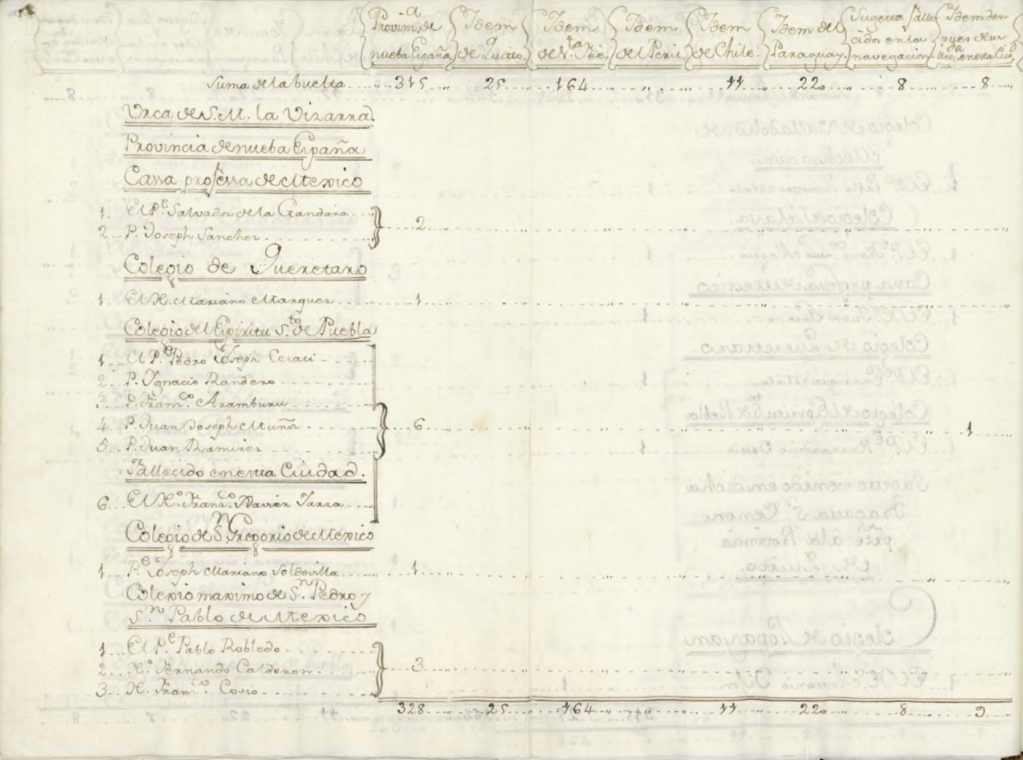 Provin.ª de nueba España
Idem de Quito
Idem de S.ta Fee
Idem del Perú
Idem de Chile
Idem del Paraguay
Sugetos falle cidos en la navegacion
Idem des
Suma de la buelta 315 25 164 11 22 8 8
Urca de S. M. la Vizarra
Provincia de nueba España
Cassa professa de Mexico
1 El P.e Salvador de la Gandara
2 P. Joseph Sanchez 2
Colegio de Queretaro
1 El H. Mariano Marquez 1
Colegio del Espiritu S.to de Puebla
1 El P.e Pedro Joseph Cesati
2 P. Ignacio Randero
3 P. Fran.co Aramburu
4 P. Juan Joseph Muñiz 6 1
5 P. Juan Ramirez
Fallecido en esta Ciudad.
6 El H.o Fran.co Xavier
Colegio de S.n Gregorio de Mexico
1 P.e Joseph Mariano Soldevilla 1
Colegio maximo de S.n Pedro y
S.n Pablo de Mexico
1 El P.e Pablo Robledo
2 H.o Fernando Calderon 3
3 H. Fran.co Cosio
328 25 164 11 22 8 9